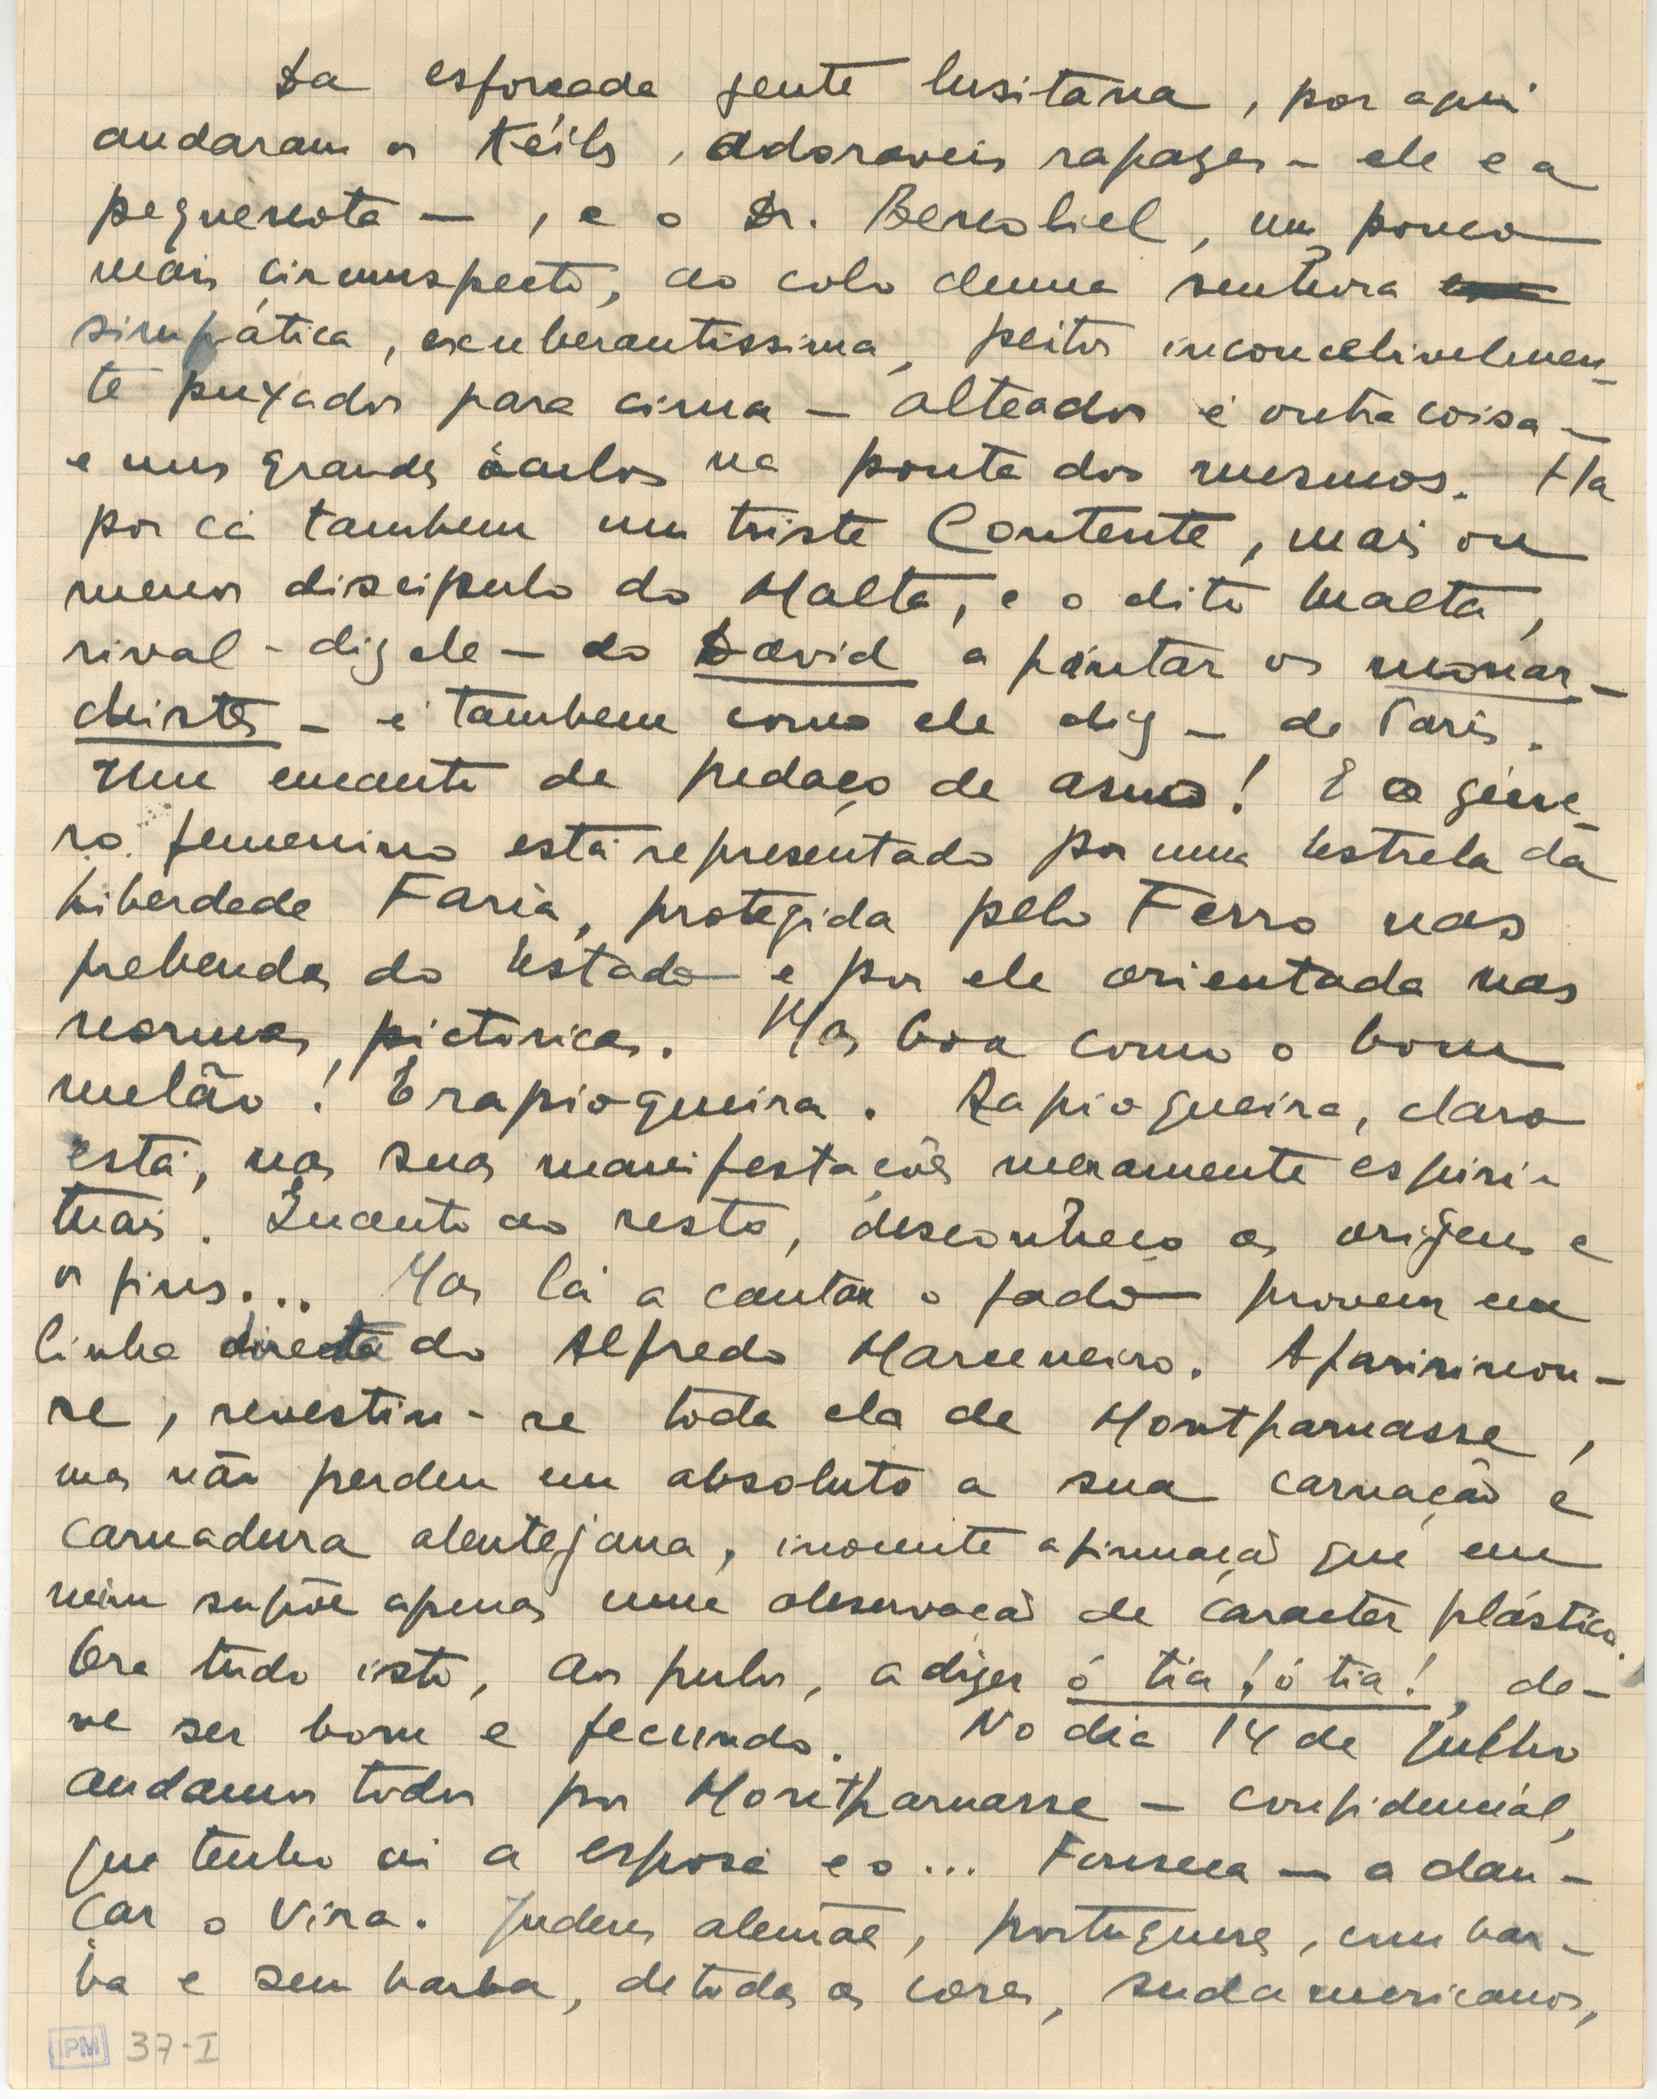 Da esforçada gente lusitana, por aqui
andaram os Keils, adoraveis rapazes - ele e a
pequenota -, e o Dr. Benoliel, um pouco
mais circunspecto, ao colo duma senhora
simpática, exuberantissima, peitos inconcebivelmen-
te puxados para cima - alteados é outra coisa -
e uns grandes óculos na ponta dos mesmos. Ha
por cá tambem um triste Contente, mais ou
menos discipulo do Malta, e o dito Malta,
rival - diz ele - do David a pintar os monar-
chistes - é tambem como ele diz - de Paris.
Um encanto de pedaço de asno! E o géne-
ro femenino está representado por uma Estrela da
Liberdade Faria, protegida pelo Ferro nas
prebendas do Estado e por ele orientada nas
normas pictoricas. Mas boa como o bom
melão! E rapioqueira. Rapioqueira, claro
está, nas suas manifestações meramente espiri-
tuais. Quanto ao resto, desconheço as origens e
os fins... Mas lá a cantar o fado provem em
linha directa do Alfredo Marceneiro. Aparisinou-
se, revestiu-se toda ela de Montparnasse,
mas não perdeu em absoluto a sua carnação e
carnadura alentejana, inocente afirmação que em
mim supõe apenas uma observação de caracter plástico.
Ora tudo isto, aos pulos, a dizer ó tia! ó tia!, de-
ve ser bom e fecundo. No dia 14 de Julho
andamos todos por Montparnasse - confidencial,
que tenho aí a esposa e o... Fonseca - a dan-
çar o Vira. Judeus alemães, portugueses, com bar-
ba e sem barba, de todas as cores, sudamericanos,
PM 37-I